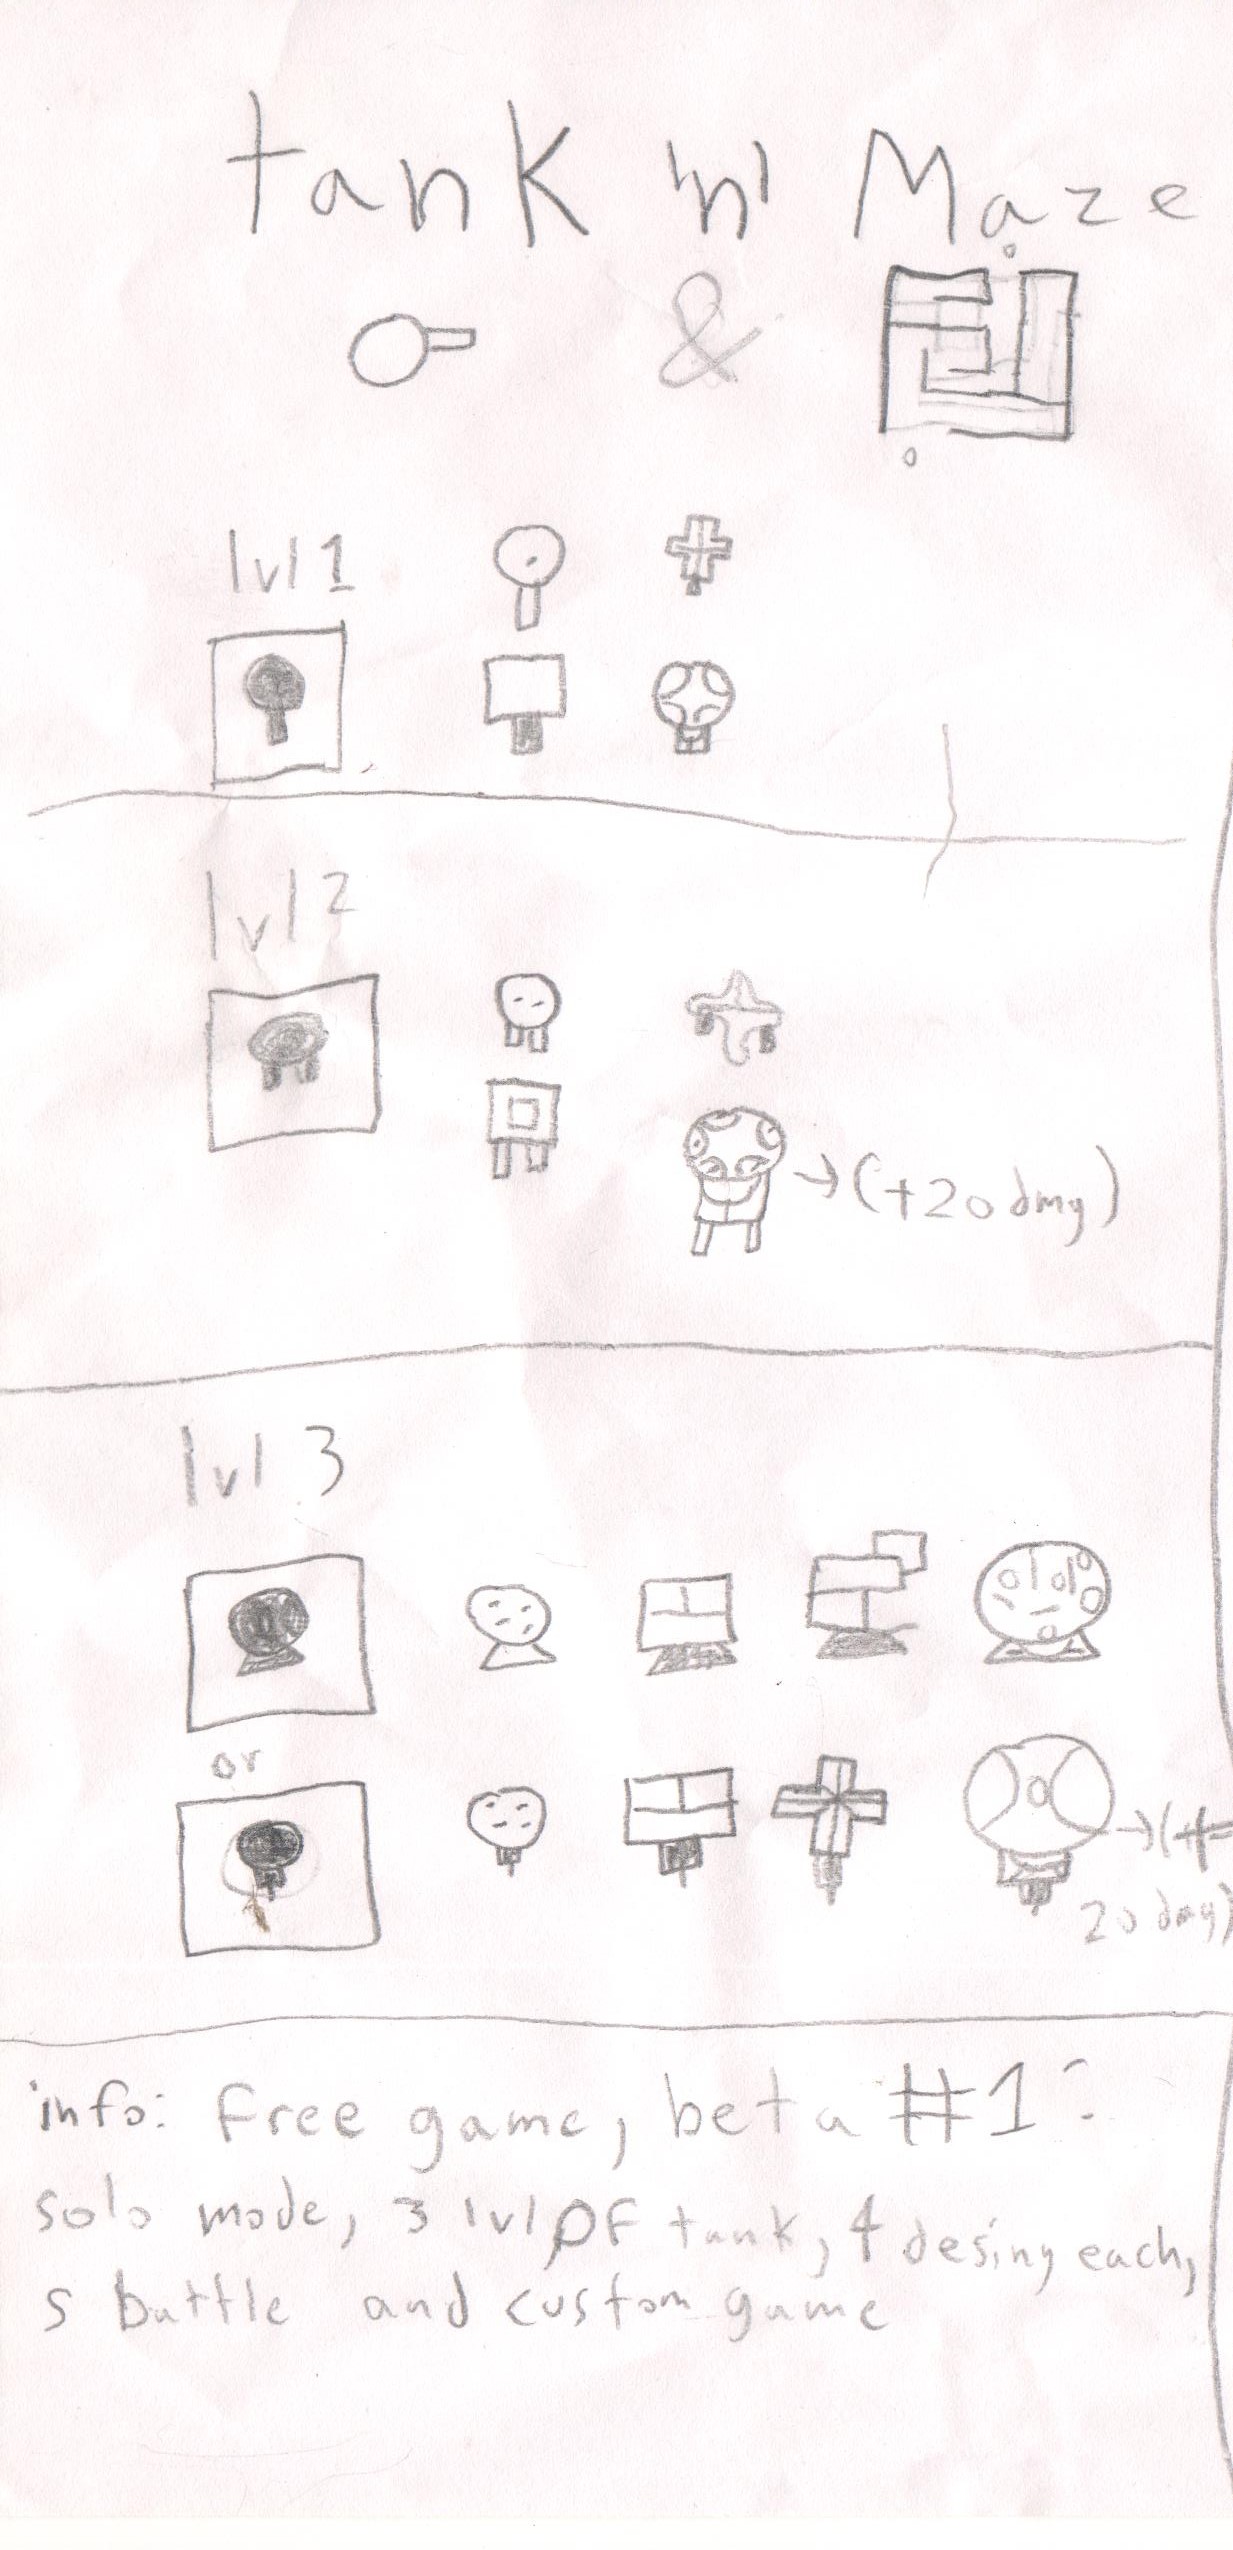 tank 'n' Maze
&
lvl 1
lvl 2
→(+20 dmg)
lvl 3
or
→(+
20 dmg)
info: free game, beta #1:
solo mode, 3 lvl of tank, 4 desing each,
5 battle and custom game